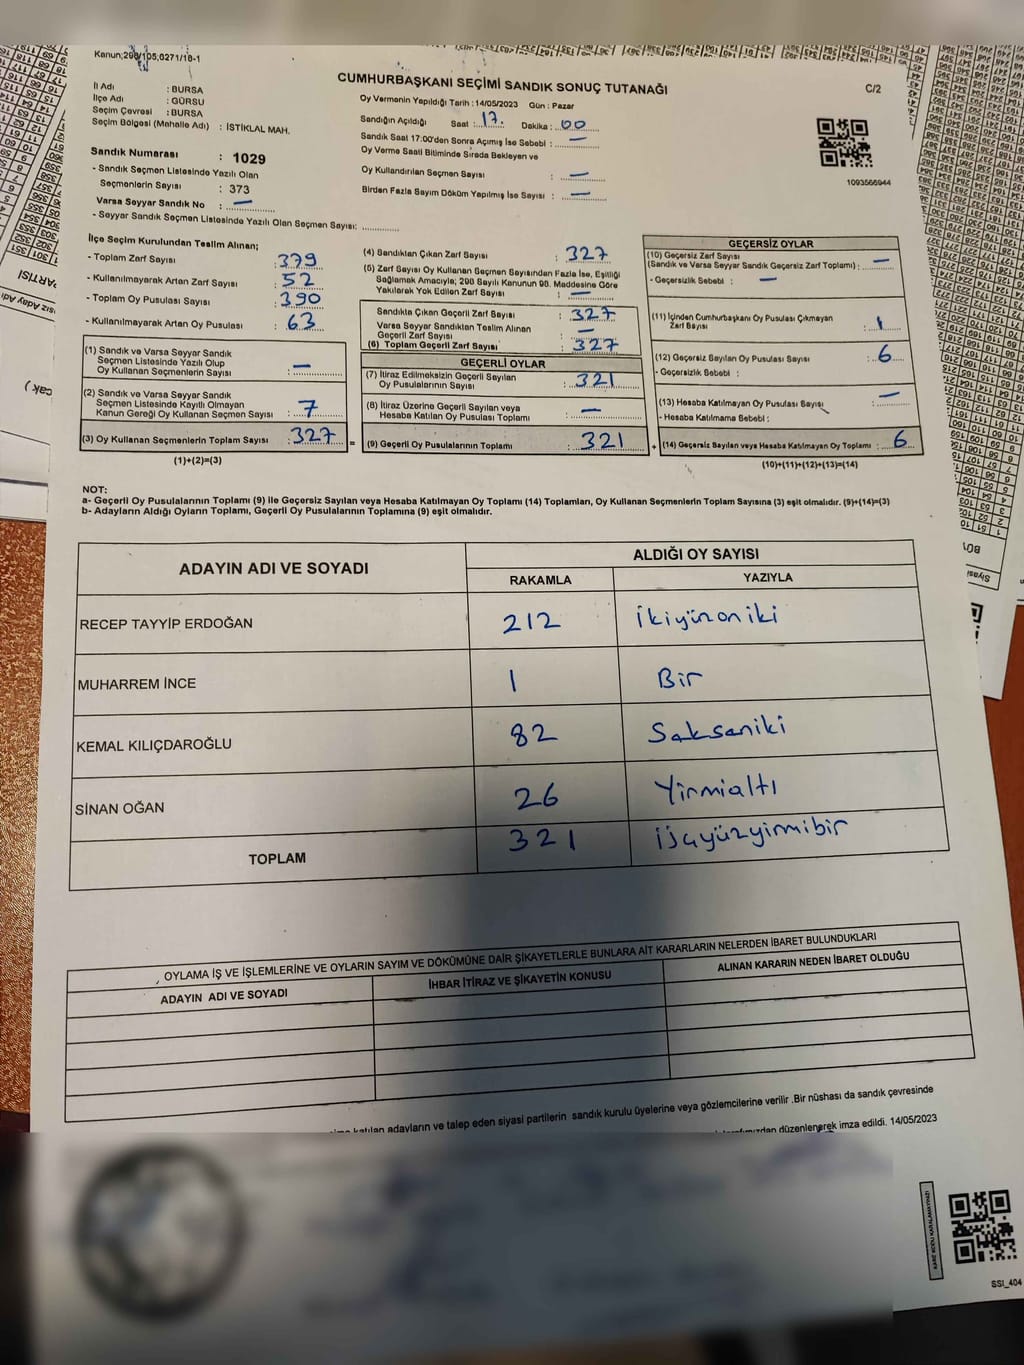 Kanun;298/105,0271/18-1
CUMHURBAŞKANI SEÇİMİ SANDIK SONUÇ TUTANAĞI
C/2
İl Adı : BURSA
İlçe Adı : GÜRSU
Seçim Çevresi : BURSA
Seçim Bölgesi (Mahalle Adı) : İSTİKLAL MAH.
Sandık Numarası : 1029
- Sandık Seçmen Listesinde Yazılı Olan
Seçmenlerin Sayısı : 373
Varsa Seyyar Sandık No : —
- Seyyar Sandık Seçmen Listesinde Yazılı Olan Seçmen Sayısı:
Oy Vermenin Yapıldığı Tarih : 14/05/2023 Gün : Pazar
Sandığın Açıldığı Saat : 17. Dakika : 00
Sandık Saat 17:00'den Sonra Açımış İse Sebebi : —
Oy Verme Saati Bitiminde Sırada Bekleyen ve
Oy Kullandırılan Seçmen Sayısı : —
Birden Fazla Sayım Döküm Yapılmış İse Sayısı : —
1093566944
İlçe Seçim Kurulundan Teslim Alınan;
- Toplam Zarf Sayısı : 379
- Kullanılmayarak Artan Zarf Sayısı : 52
- Toplam Oy Pusulası Sayısı : 390
- Kullanılmayarak Artan Oy Pusulası : 63
(1) Sandık ve Varsa Seyyar Sandık
Seçmen Listesinde Yazılı Olup
Oy Kullanan Seçmenlerin Sayısı : —
(2) Sandık ve Varsa Seyyar Sandık
Seçmen Listesinde Kayıtlı Olmayan
Kanun Gereği Oy Kullanan Seçmen Sayısı : 7
(3) Oy Kullanan Seçmenlerin Toplam Sayısı : 327
(1)+(2)=(3)
(4) Sandıktan Çıkan Zarf Sayısı : 327
(5) Zarf Sayısı Oy Kullanan Seçmen Sayısından Fazla İse, Eşitliği
Sağlamak Amacıyla; 298 Sayılı Kanunun 98. Maddesine Göre
Yakılarak Yok Edilen Zarf Sayısı : —
Sandıkta Çıkan Geçerli Zarf Sayısı : 327
Varsa Seyyar Sandıktan Teslim Alınan
Geçerli Zarf Sayısı : —
(6) Toplam Geçerli Zarf Sayısı : 327
GEÇERLİ OYLAR
(7) İtiraz Edilmeksizin Geçerli Sayılan
Oy Pusulalarının Sayısı : 321
(8) İtiraz Üzerine Geçerli Sayılan veya
Hesaba Katılan Oy Pusulaları Toplamı : —
= (9) Geçerli Oy Pusulalarının Toplamı : 321
GEÇERSİZ OYLAR
(10) Geçersiz Zarf Sayısı
(Sandık ve Varsa Seyyar Sandık Geçersiz Zarf Toplamı) : —
- Geçersizlik Sebebi : —
(11) İçinden Cumhurbaşkanı Oy Pusulası Çıkmayan
Zarf Sayısı : 1
(12) Geçersiz Sayılan Oy Pusulası Sayısı : 6
- Geçersizlik Sebebi :
(13) Hesaba Katılmayan Oy Pusulası Sayısı : —
- Hesaba Katılmama Sebebi :
+ (14) Geçersiz Sayılan veya Hesaba Katılmayan Oy Toplamı : 6
(10)+(11)+(12)+(13)=(14)
NOT:
a- Geçerli Oy Pusulalarının Toplamı (9) ile Geçersiz Sayılan veya Hesaba Katılmayan Oy Toplamı (14) Toplamları, Oy Kullanan Seçmenlerin Toplam Sayısına (3) eşit olmalıdır. (9)+(14)=(3)
b- Adayların Aldığı Oyların Toplamı, Geçerli Oy Pusulalarının Toplamına (9) eşit olmalıdır.
ADAYIN ADI VE SOYADI ALDIĞI OY SAYISI
RAKAMLA YAZIYLA
RECEP TAYYİP ERDOĞAN 212 İkiyüzoniki
MUHARREM İNCE 1 Bir
KEMAL KILIÇDAROĞLU 82 Seksaniki
SİNAN OĞAN 26 Yirmialtı
TOPLAM 321 Üçyüzyirmibir
OYLAMA İŞ VE İŞLEMLERİNE VE OYLARIN SAYIM VE DÖKÜMÜNE DAİR ŞİKAYETLERLE BUNLARA AİT KARARLARIN NELERDEN İBARET BULUNDUKLARI
ADAYIN ADI VE SOYADI İHBAR İTİRAZ VE ŞİKAYETİN KONUSU ALINAN KARARIN NEDEN İBARET OLDUĞU
katılan adayların ve talep eden siyasi partilerin sandık kurulu üyelerine veya gözlemcilerine verilir .Bir nüshası da sandık çevresinde
düzenlenerek imza edildi. 14/05/2023
KARE KODU KARALAMAYINIZ!
SSI_404